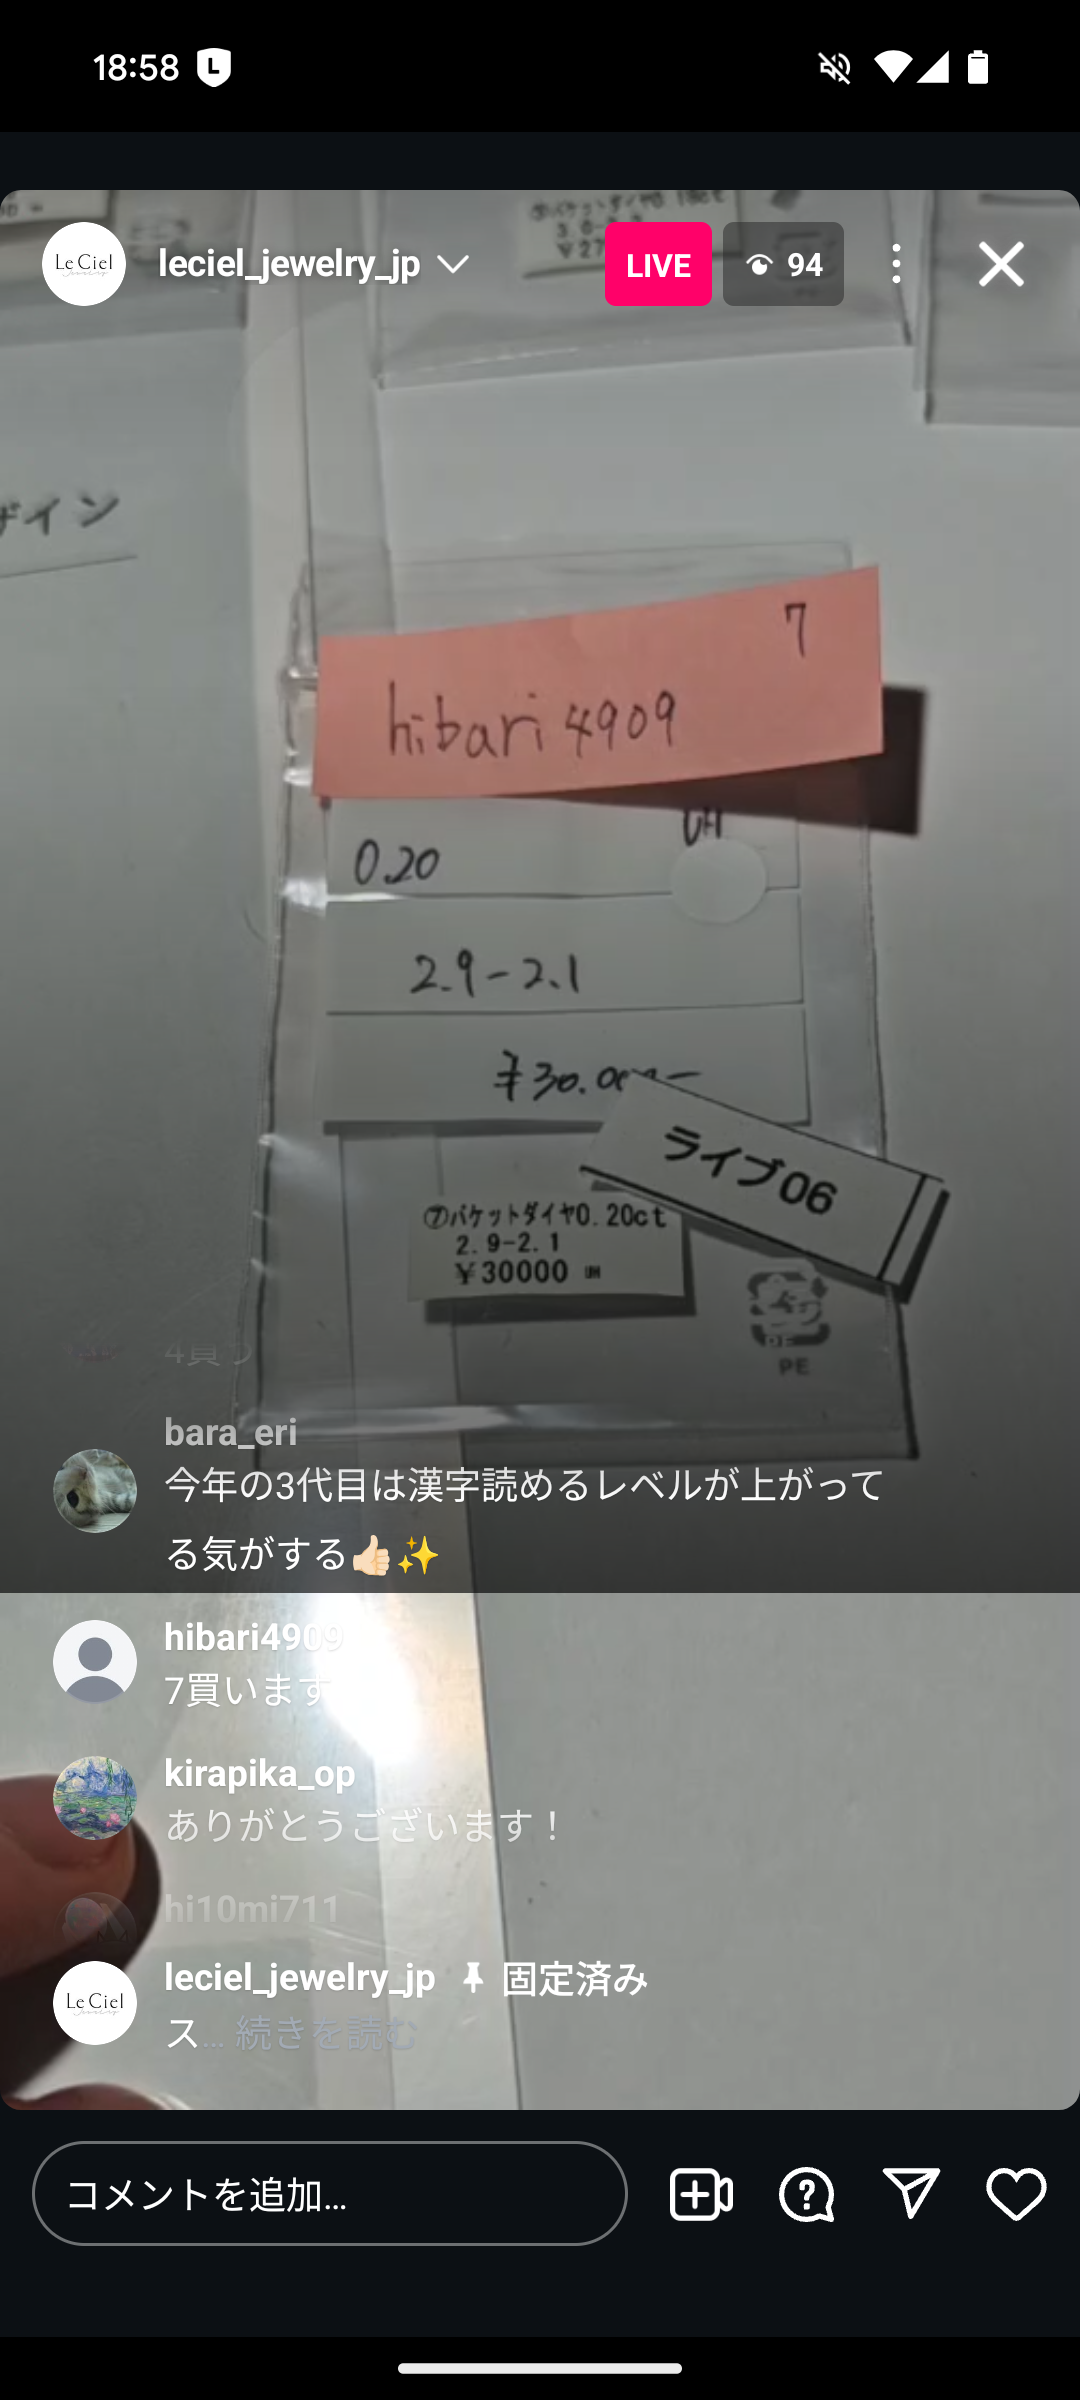 18:58
LeCiel
leciel_jewelry_jp
LIVE
94
ザイン
7
hibari4909
0.20
UH
2.9-2.1
ライブ06
⑦バケットダイヤ0.20ct
2.9-2.1
¥30000 UH
PE
4買う
bara_eri
今年の3代目は漢字読めるレベルが上がって
る気がする👍🏻✨
hibari4909
7買います
kirapika_op
ありがとうございます！
hi10mi711
LeCiel
leciel_jewelry_jp 固定済み
ス... 続きを読む
コメントを追加...